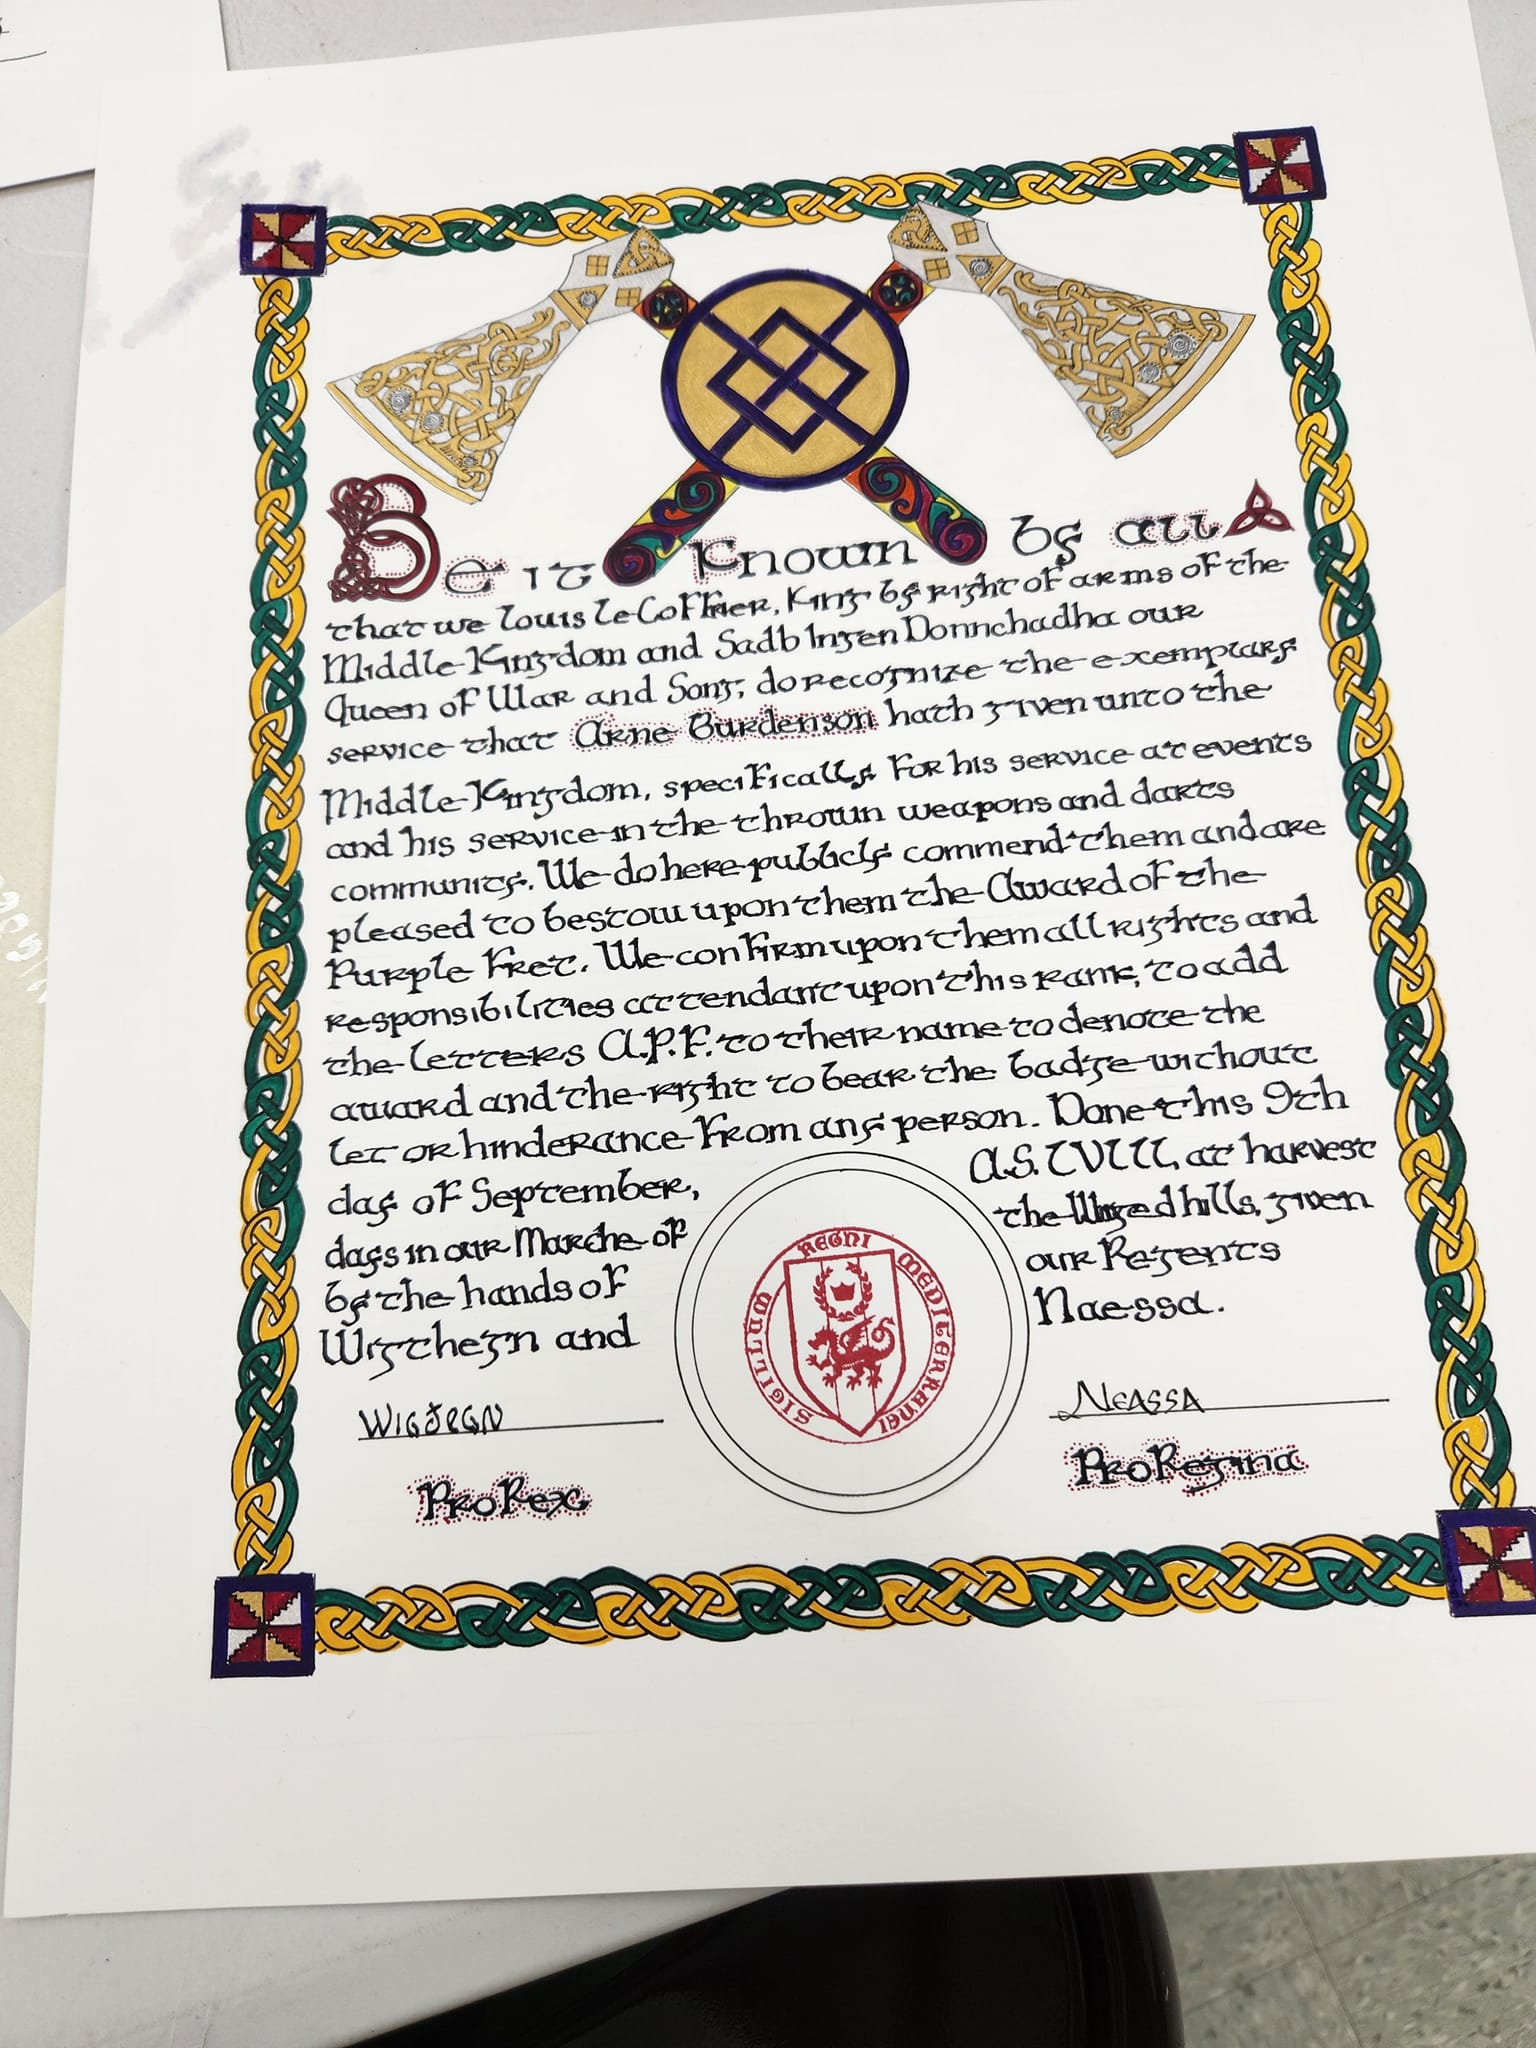 Be it Known by all
that we Louis le Coffier, King by right of arms of the
Middle Kingdom and Sadb Ingen Donnchadha our
Queen of War and Song, do recognize the exemplary
service that Arne Burdenson hath given unto the
Middle Kingdom, specifically for his service at events
and his service in the thrown weapons and darts
community. We do here publicly commend them and are
pleased to bestow upon them the Award of the
Purple Fret. We confirm upon them all rights and
responsibilities attendant upon this rank, to add
the letters A.P.F. to their name to denote the
award and the right to bear the badge without
let or hinderance from any person. Done this 9th
day of September, A.S. LVIII, at harvest
days in our Marche of the Winged hills, given
by the hands of our Regents
Wigthegn and Naessa.
SIGILLUM REGNI MEDITERRANEI
NEASSA
ProRex
ProRegina